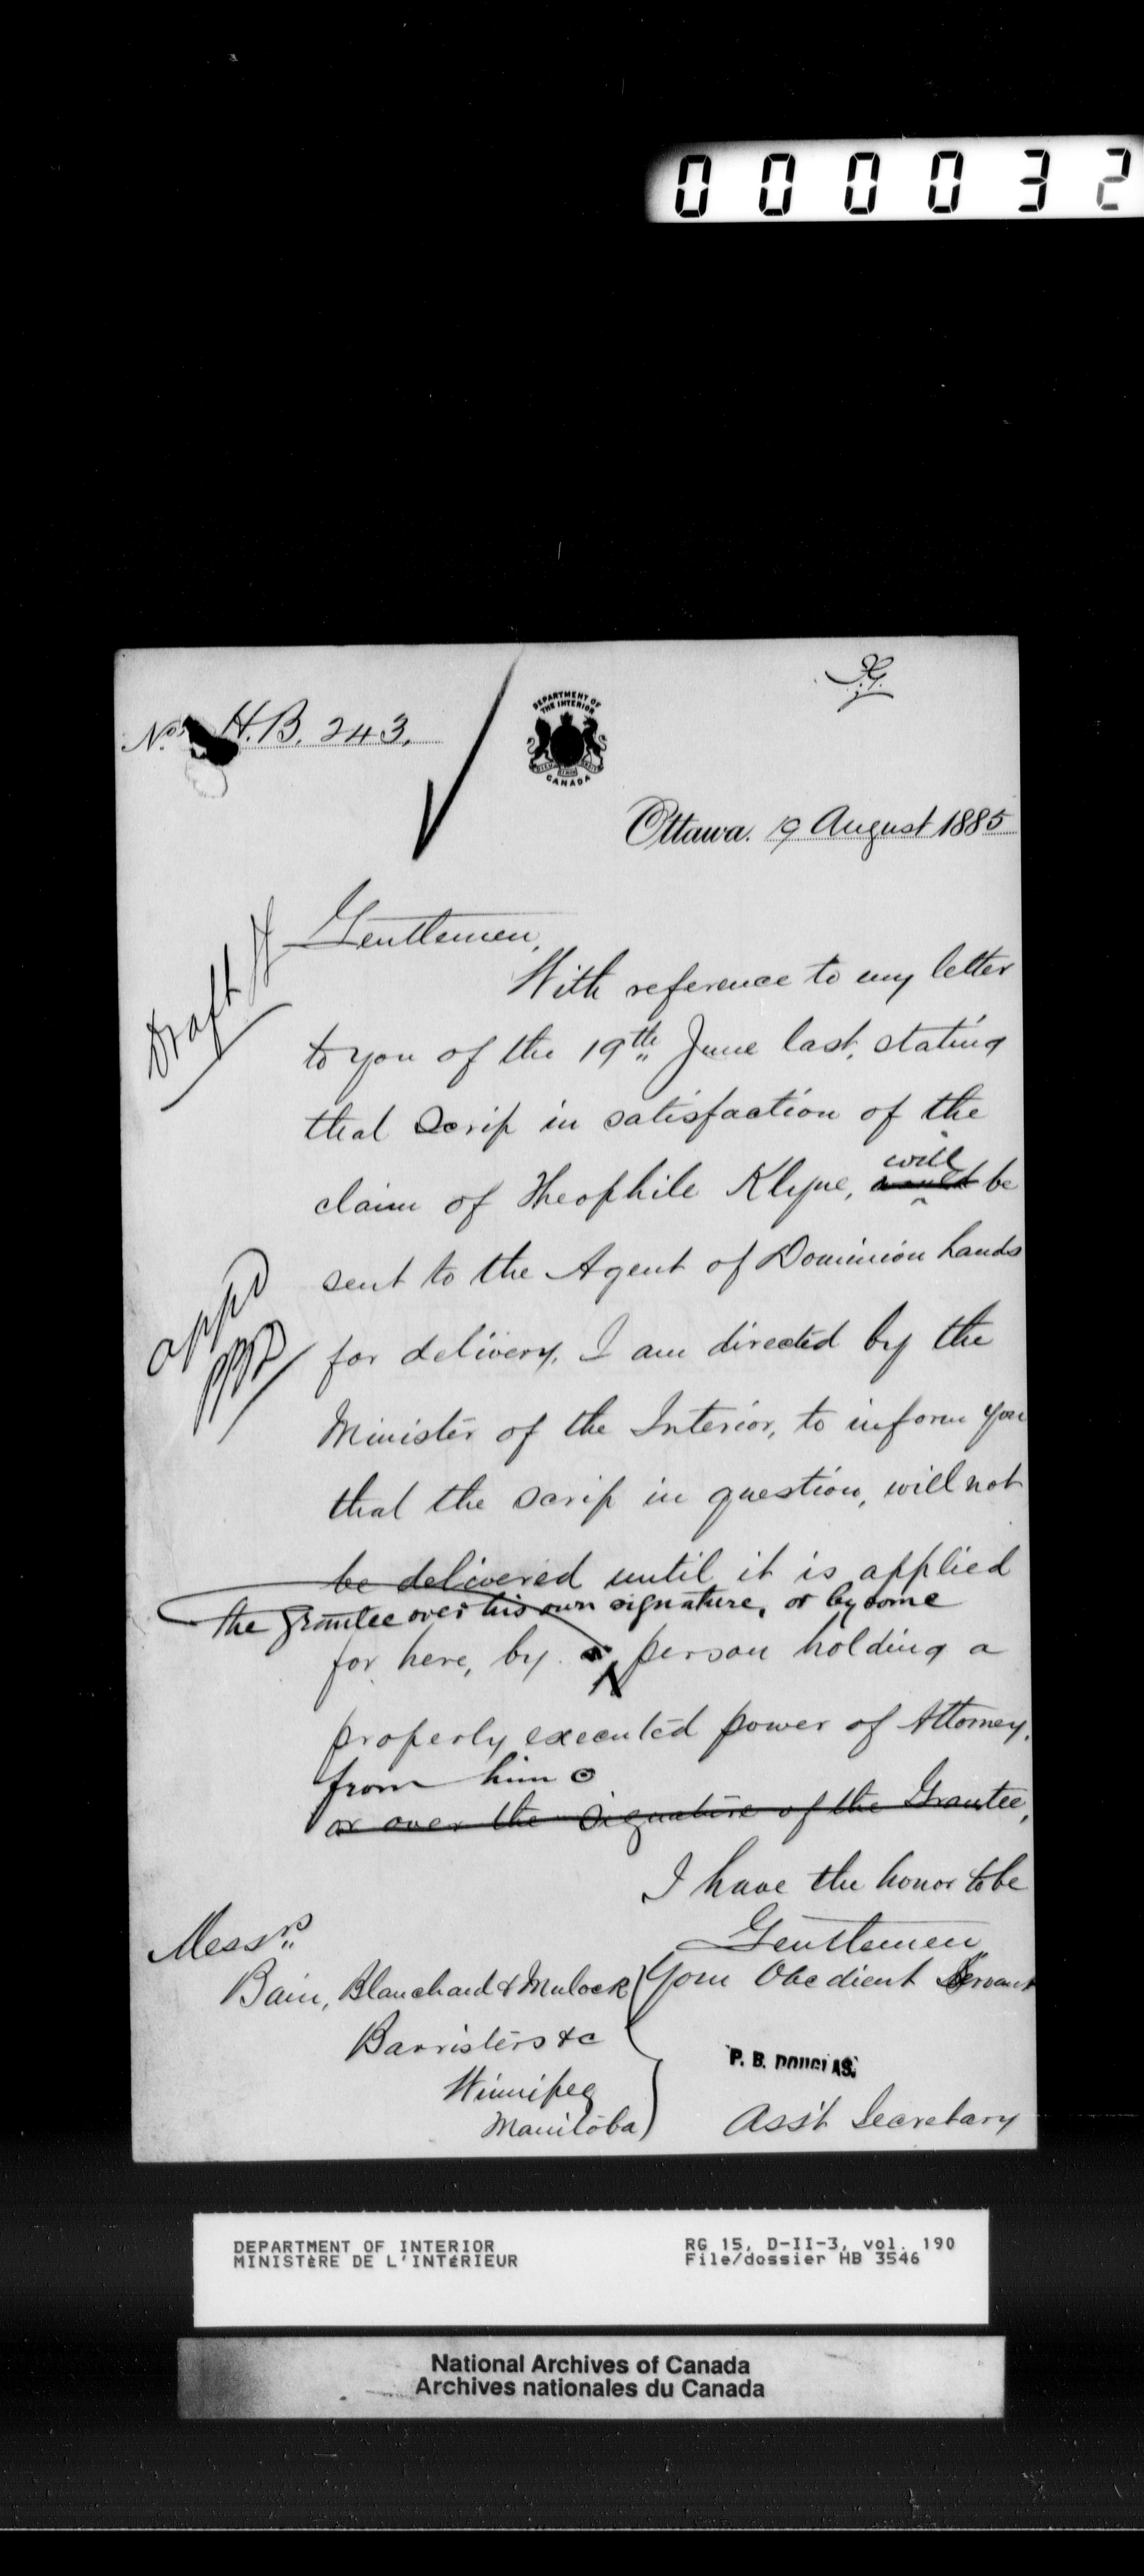 000032
No. H.B. 243.
DEPARTMENT OF
THE INTERIOR
CANADA
Ottawa. 19 August 1885
Draft
Gentlemen,
With reference to my letter
to you of the 19th June last, stating
that Scrip in satisfaction of the
will
claim of Theophile Klyne, would be
sent to the Agent of Dominion Lands
appd
for delivery, I am directed by the
Minister of the Interior, to inform you
that the scrip in question, will not
be delivered until it is applied
the Grantee over his own signature, or by some
for here, by a person holding a
properly executed power of Attorney,
from him
or over the signature of the Grantee,
I have the honor to be
Gentlemen
Your Obedient Servant
Messrs
Bain, Blanchard & Mulock
Barristers &c
Winnipeg
Manitoba
P. B. DOUGLAS.
Ass't Secretary
DEPARTMENT OF INTERIOR
MINISTÈRE DE L'INTÉRIEUR
RG 15, D-II-3, vol. 190
File/dossier HB 3546
National Archives of Canada
Archives nationales du Canada